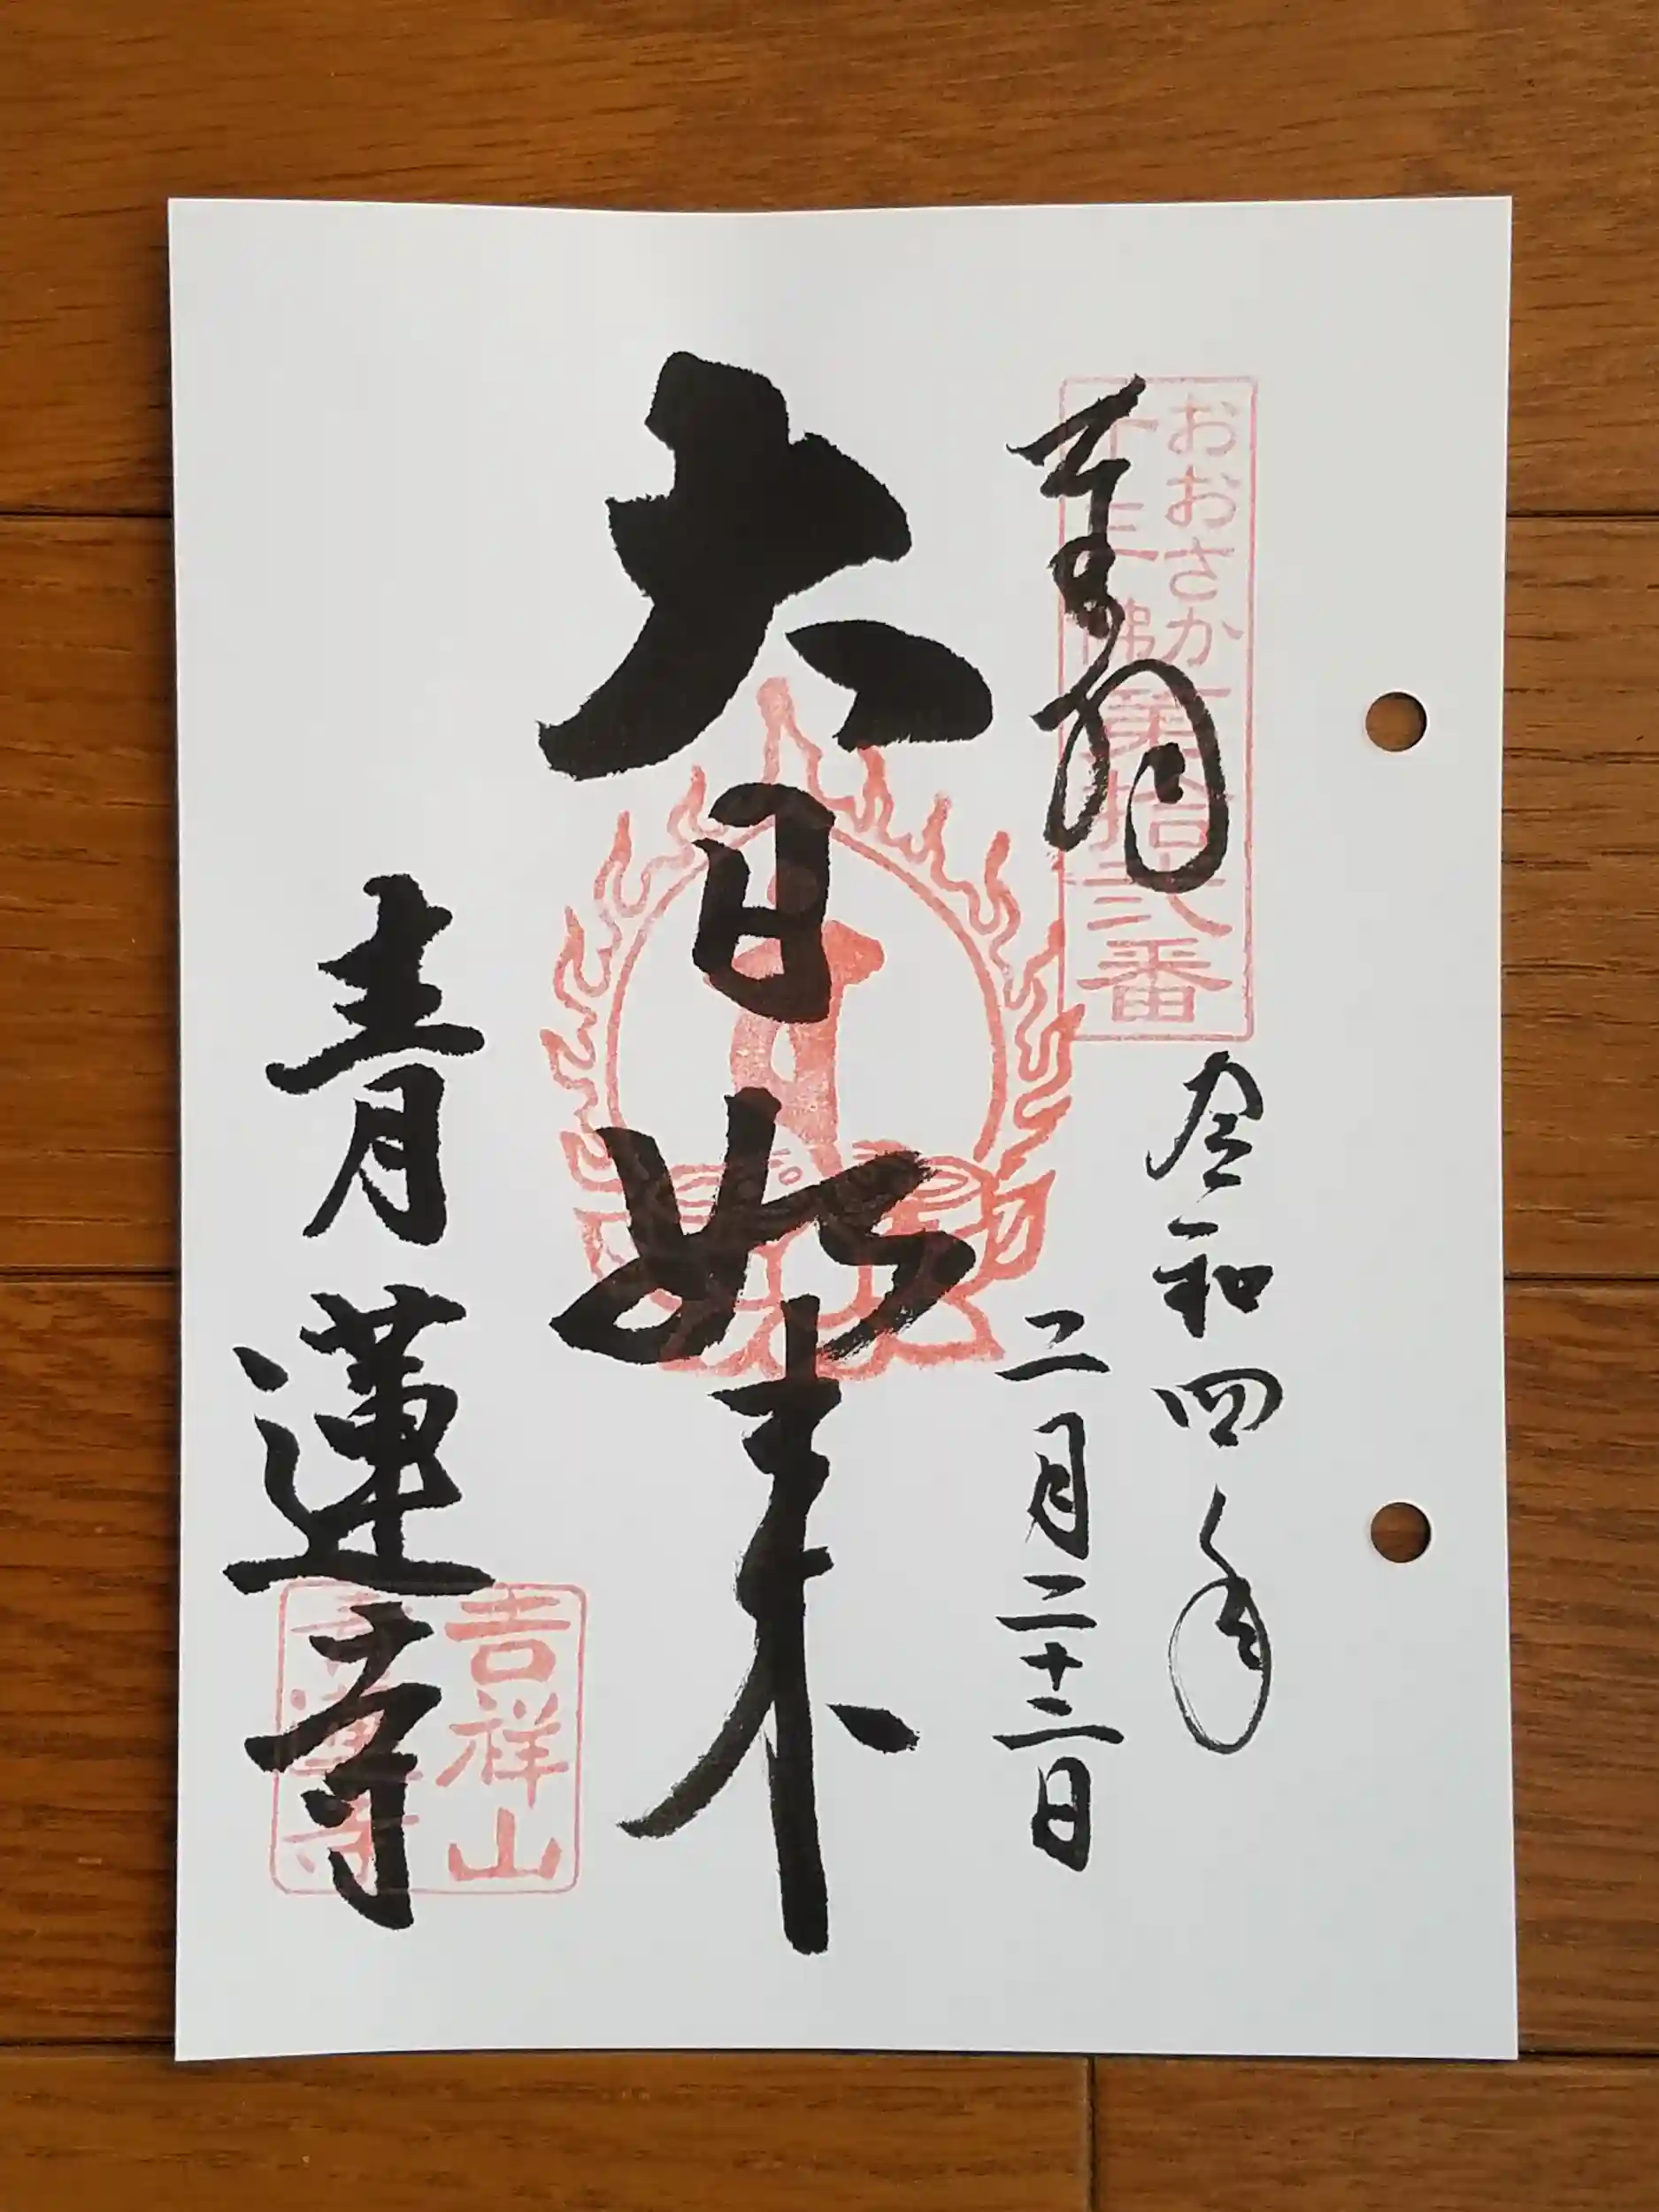 奉拝
おおさか
十三佛
第拾弐番
令和四年
二月二十二日
大日如来
青蓮寺
吉祥山
青蓮寺